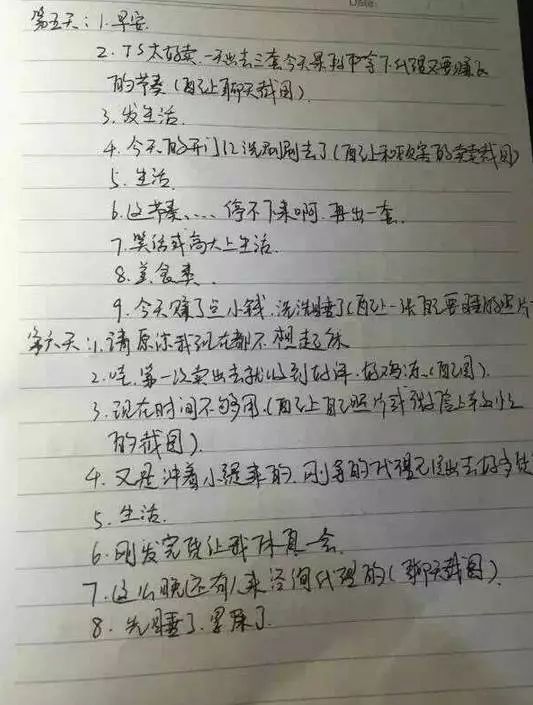 第五天：1.早安.
2. TS太好卖.一天出去三套今天累到中拿下代理又要赚
的节奏（配上聊天截图）.
3.发生活.
4.今天的开门红洗刷刷去了（配上和顾客的卖卖截图）
5.生活.
6.这节奏....停不下来啊.再出一套.
7.笑话或高大上生活.
8.美食类.
9.今天赚了点小钱.洗洗睡了（配上一张自己要睡的照片
第六天：1.请原谅我现在都不想起床
2.哇.第一次卖出去就收到好评.好鸡冻.（配图）
3.现在时间不够用.（配上自己照片或微信上未
的截图）.
4.又是冲着小强来的.刚来的代理已经出去好多
5.生活.
6.刚发完货让我休息一会.
7.这么晚还有人来咨询代理的（聊天截图）.
8.先睡了.累尿了.